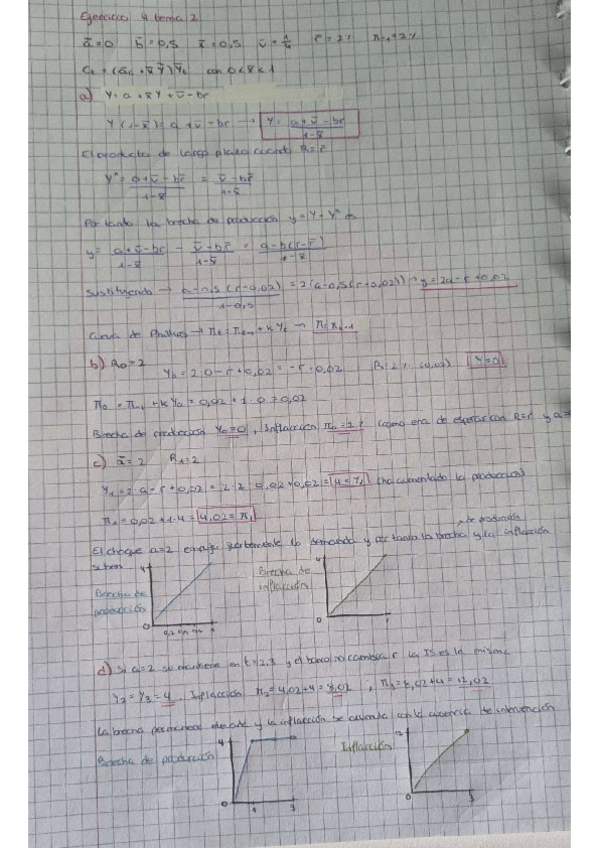 Ejercicio 4 tema 2
ā=0 b̄=0,5 x̄=0,5 v̄=1/4 r̄=2% π₋₁=2%
Cₜ = (āc + x̄Ȳ)Ȳₜ con 0<x̄<1
a) Y=a+x̄Y+v̄-br
Y(1-x̄)=a+v̄-br → Y = (a+v̄-br)/(1-x̄)
El producto de largo plazo cuando R=r̄
Yⁿ = (0+v̄-br̄)/(1-x̄) = (v̄-br̄)/(1-x̄)
Por tanto la brecha de producción y=Y+Yⁿ
y= (a+v̄-br)/(1-x̄) - (v̄-br̄)/(1-x̄) = (a-b(r-r̄))/(1-x̄)
Sustituyendo → (a-0,5(r-0,02))/(1-0,5) = 2(a-0,5(r+0,02)) → y=2a-r+0,02
Curva de Phillips → πₜ=πₜ₋₁+kYₜ → π=πₜ₋₁
b) R₀=2 Y₀=2·0-r+0,02=-r+0,02 R=2% (0,02) Y=0
π₀ = π₋₁+kY₀=0,02+1·0=0,02
Brecha de producción Y₀=0, Inflación π₀=2% (como era de esperar con R=r̄ y a=
c) ā=2 R₁=2
Y₁=2a-r+0,02=2·2-0,02+0,02=4=Y₁ (ha aumentado la producción)
π₁=0,02+1·4=4,02=π₁
El choque a=2 empuja la demanda y por tanto la brecha de producción y la inflación
suben
4
Brecha de
producción
0
Brecha de
inflación
4
0
d) Si a=2 se mantiene en t=2,3 y el banco no cambia r la IS es la misma
Y₂=Y₃=4 Inflación π₂=4,02+4=8,02; π₃=8,02+4=12,02
La brecha permanece elevada y la inflación se acumula con la ausencia de intervención
Brecha de producción
4
0 1 3
Inflación
12
0 3